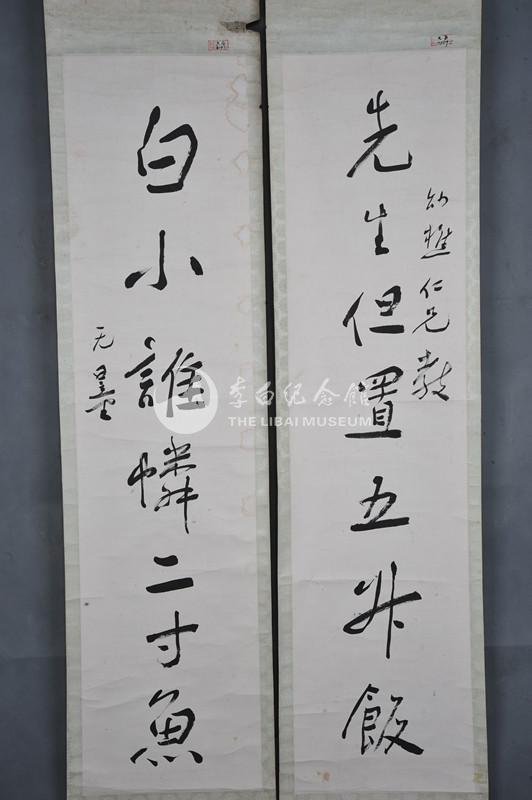 先生但置五升飯
仁兄教
白小誰憐二寸魚
无量
李白纪念館
THE LIBAI MUSEUM